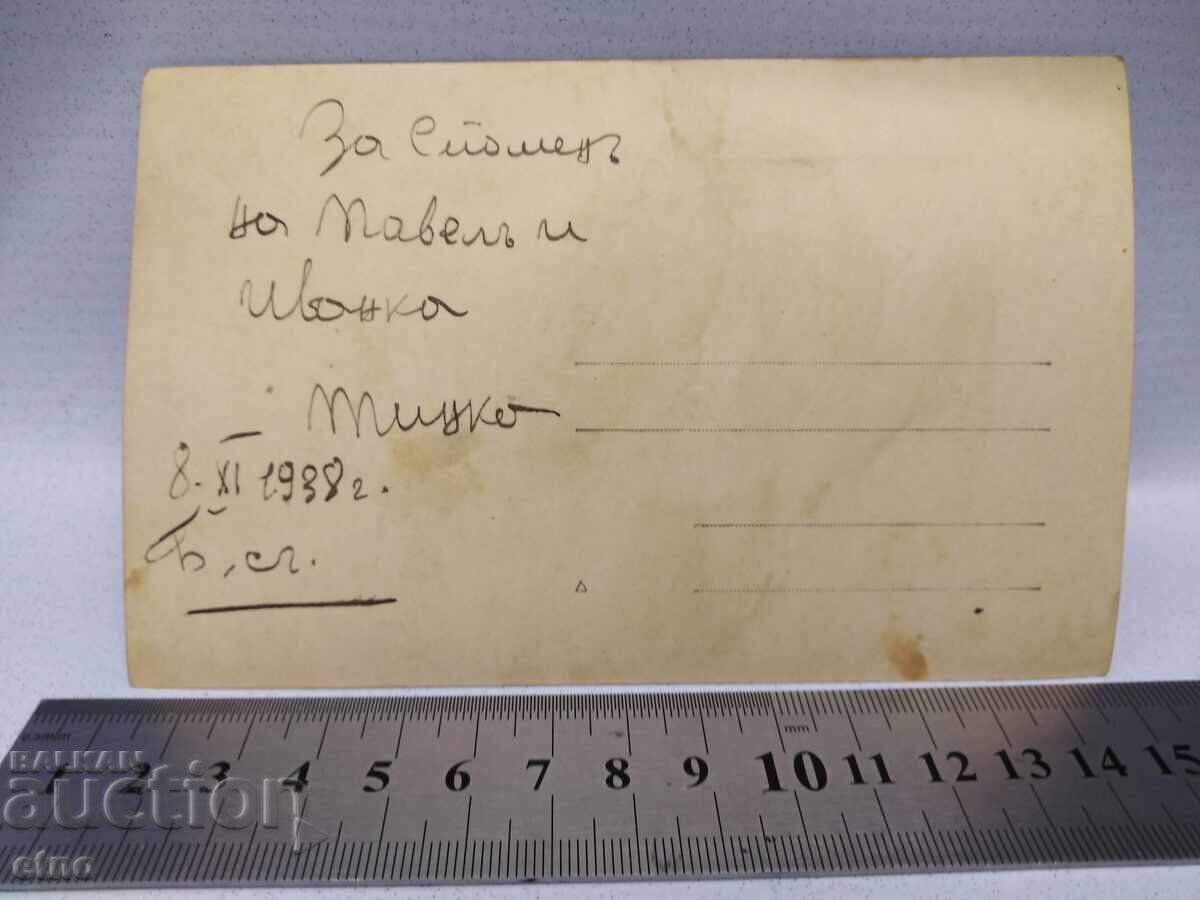 За Споменъ
на Павелъ и
Иванка
– Минко
8. XI 1938 г.
Б, сл.
mm
1 2 3 4 5 6 7 8 9 10 11 12 13 14 15
BALKAN
auction
etno